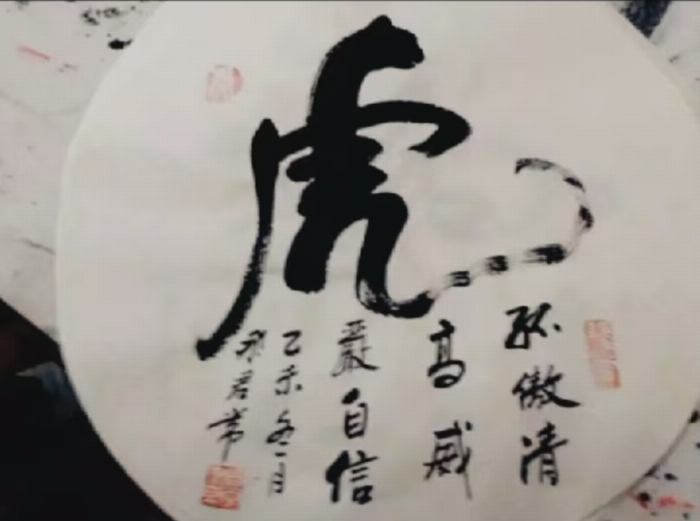 虎
孤傲清
高威
嚴自信
乙未冬月